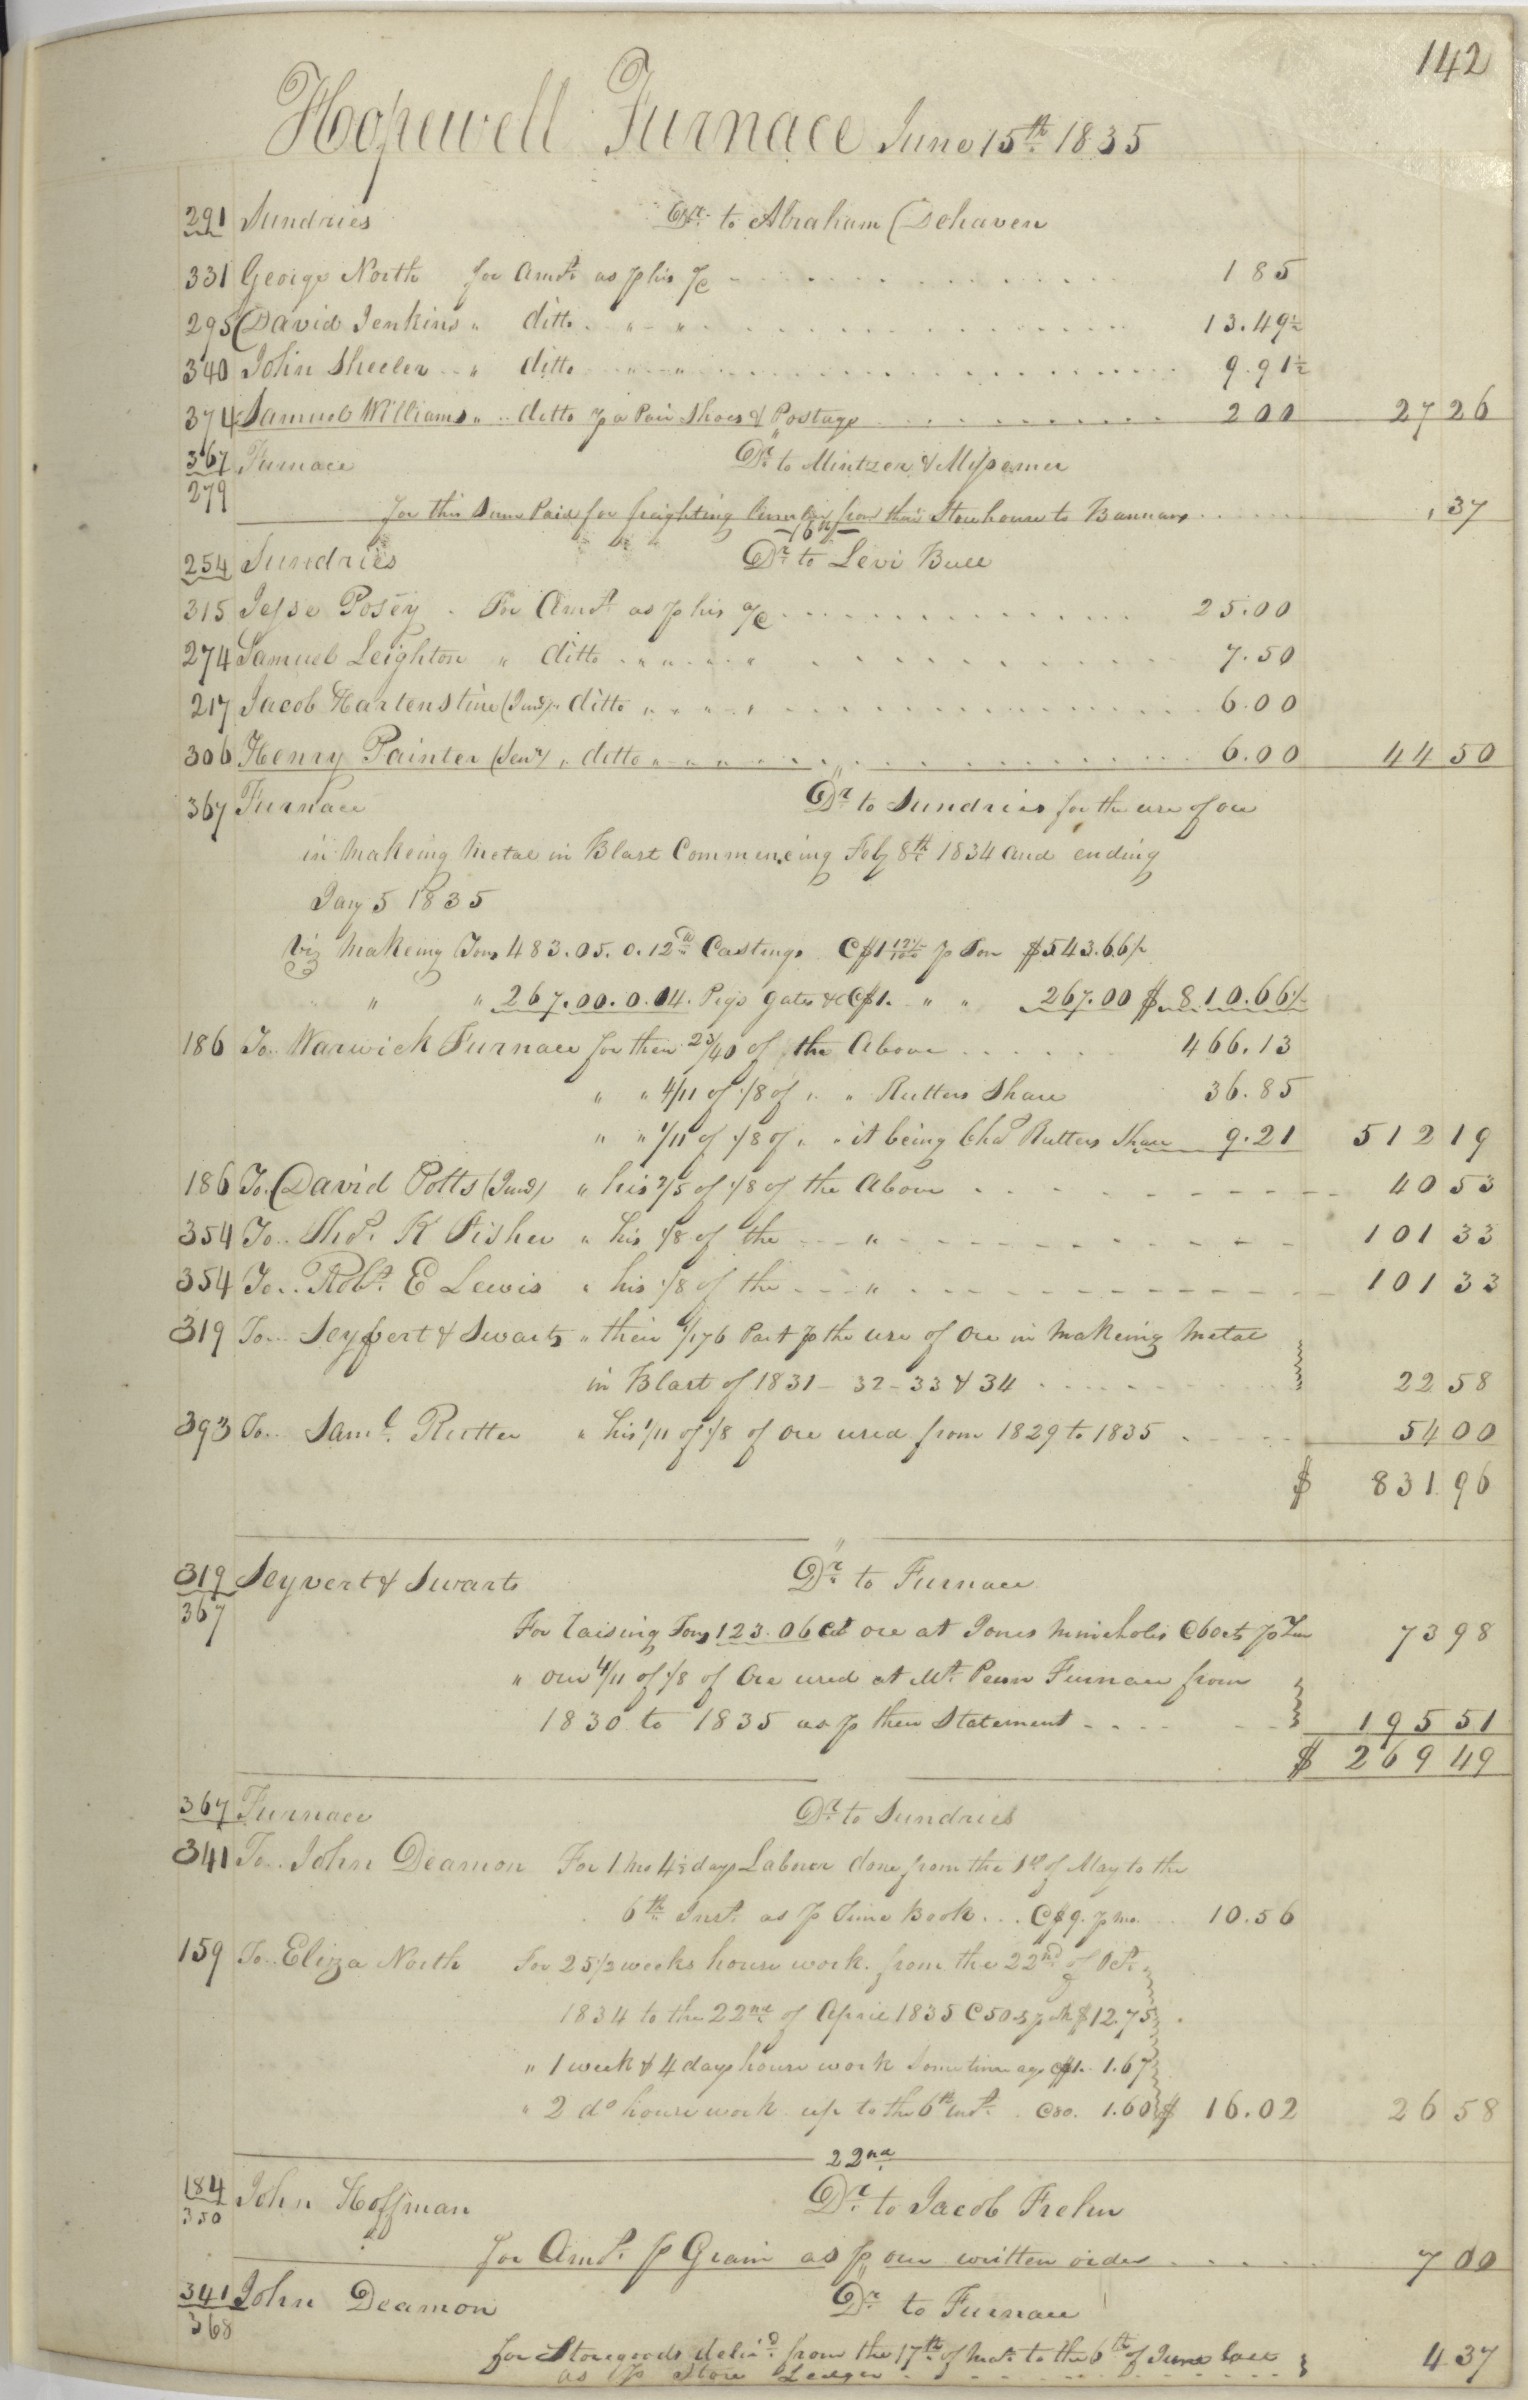 142
Hopewell Furnace June 15th 1835
291 Sundries Dr. to Abraham Dehaven
331 George North for Amt. as p his a/c 1 85
295 David Jenkins " ditto " " 13.49½
340 John Sheeler " ditto " " 9.91½
374 Samuel Williams " ditto p a Pair Shoes & Postage 2 00 27 26
367 Furnace Dr. to Mintzer &
279 for this Sum Paid for freighting from their Storehouse to ,37
16th
254 Sundries Dr. to Levi Bull
315 Jesse Posey . For Amt. as p his a/c 25.00
274 Samuel Leighton " ditto " " " 7.50
217 Jacob Hartenstine (Junr) " ditto " " " 6.00
306 Henry Painter (Senr) " ditto " " " 6.00 44 50
"
367 Furnace Dr. to Sundries for the use of ore
in Makeing Metal in Blast Commenceing Feby 8th 1834 and ending
Jany 5 1835
Viz Makeing Tons 483.05.0.12 Castings @ $1 12½/100 p Ton $543.66½
" " 267.00.0.04. Pigs Gates &c @ $1. " " 267.00 $ 810.66½
186 To Warwick Furnace for their 23/40 of the Above 466.13
" " 4/11 of 1/8 of " " Rutters Share 36.85
" " 1/11 of 1/8 of " " it being Chas Rutters Share 9.21 512 19
186 To David Potts (Junr) " his 2/5 of 1/8 of the Above 40 53
354 To .. Thos. K Fisher " his 1/8 of the " 101 33
354 To .. Robt. E Lewis " his 1/8 of the " 101 33
319 To .. Seyfert & Swarts " their 1/176 Part p the use of Ore in Makeing Metal
in Blast of 1831 - 32 - 33 & 34 22 58
393 To .. Saml. Rutter " his 1/11 of 1/8 of Ore used from 1829 to 1835 54 00
$ 831 96
"
319 Seyvert & Swarts Dr. to Furnace
367
For raising Tons 123.06 Cwt ore at Jones @ 60cts p Ton 73 98
" our 4/11 of 1/8 of Ore used at Mt. Penn Furnace from
1830 to 1835 as p their Statement 195 51
$ 269 49
367 Furnace Dr. to Sundries
341 To .. John Deamon For 1 mo 4½ days Labour done from the 1st of May to the
6th Inst. as p Time Book ... @ $9. p mo. 10.56
159 To .. Eliza North For 25½ weeks house work from the 22nd of Oct.
1834 to the 22nd of April 1835 @ 50cts p wk $12.75
" 1 week & 4 days house work Sometime ago @ $1. 1.67
" 2 do house work up to the 6th Inst. @ 80. 1.60 $ 16.02 26 58
22nd
184 John Hoffman Dr. to Jacob Frehn
350
for Amt. p Grain as p our written order 7 00
"
341 John Deamon Dr. to Furnace
368
for Storegoods delivd. from the 17th of to the 6th of June last
as p Store Ledger 4 37